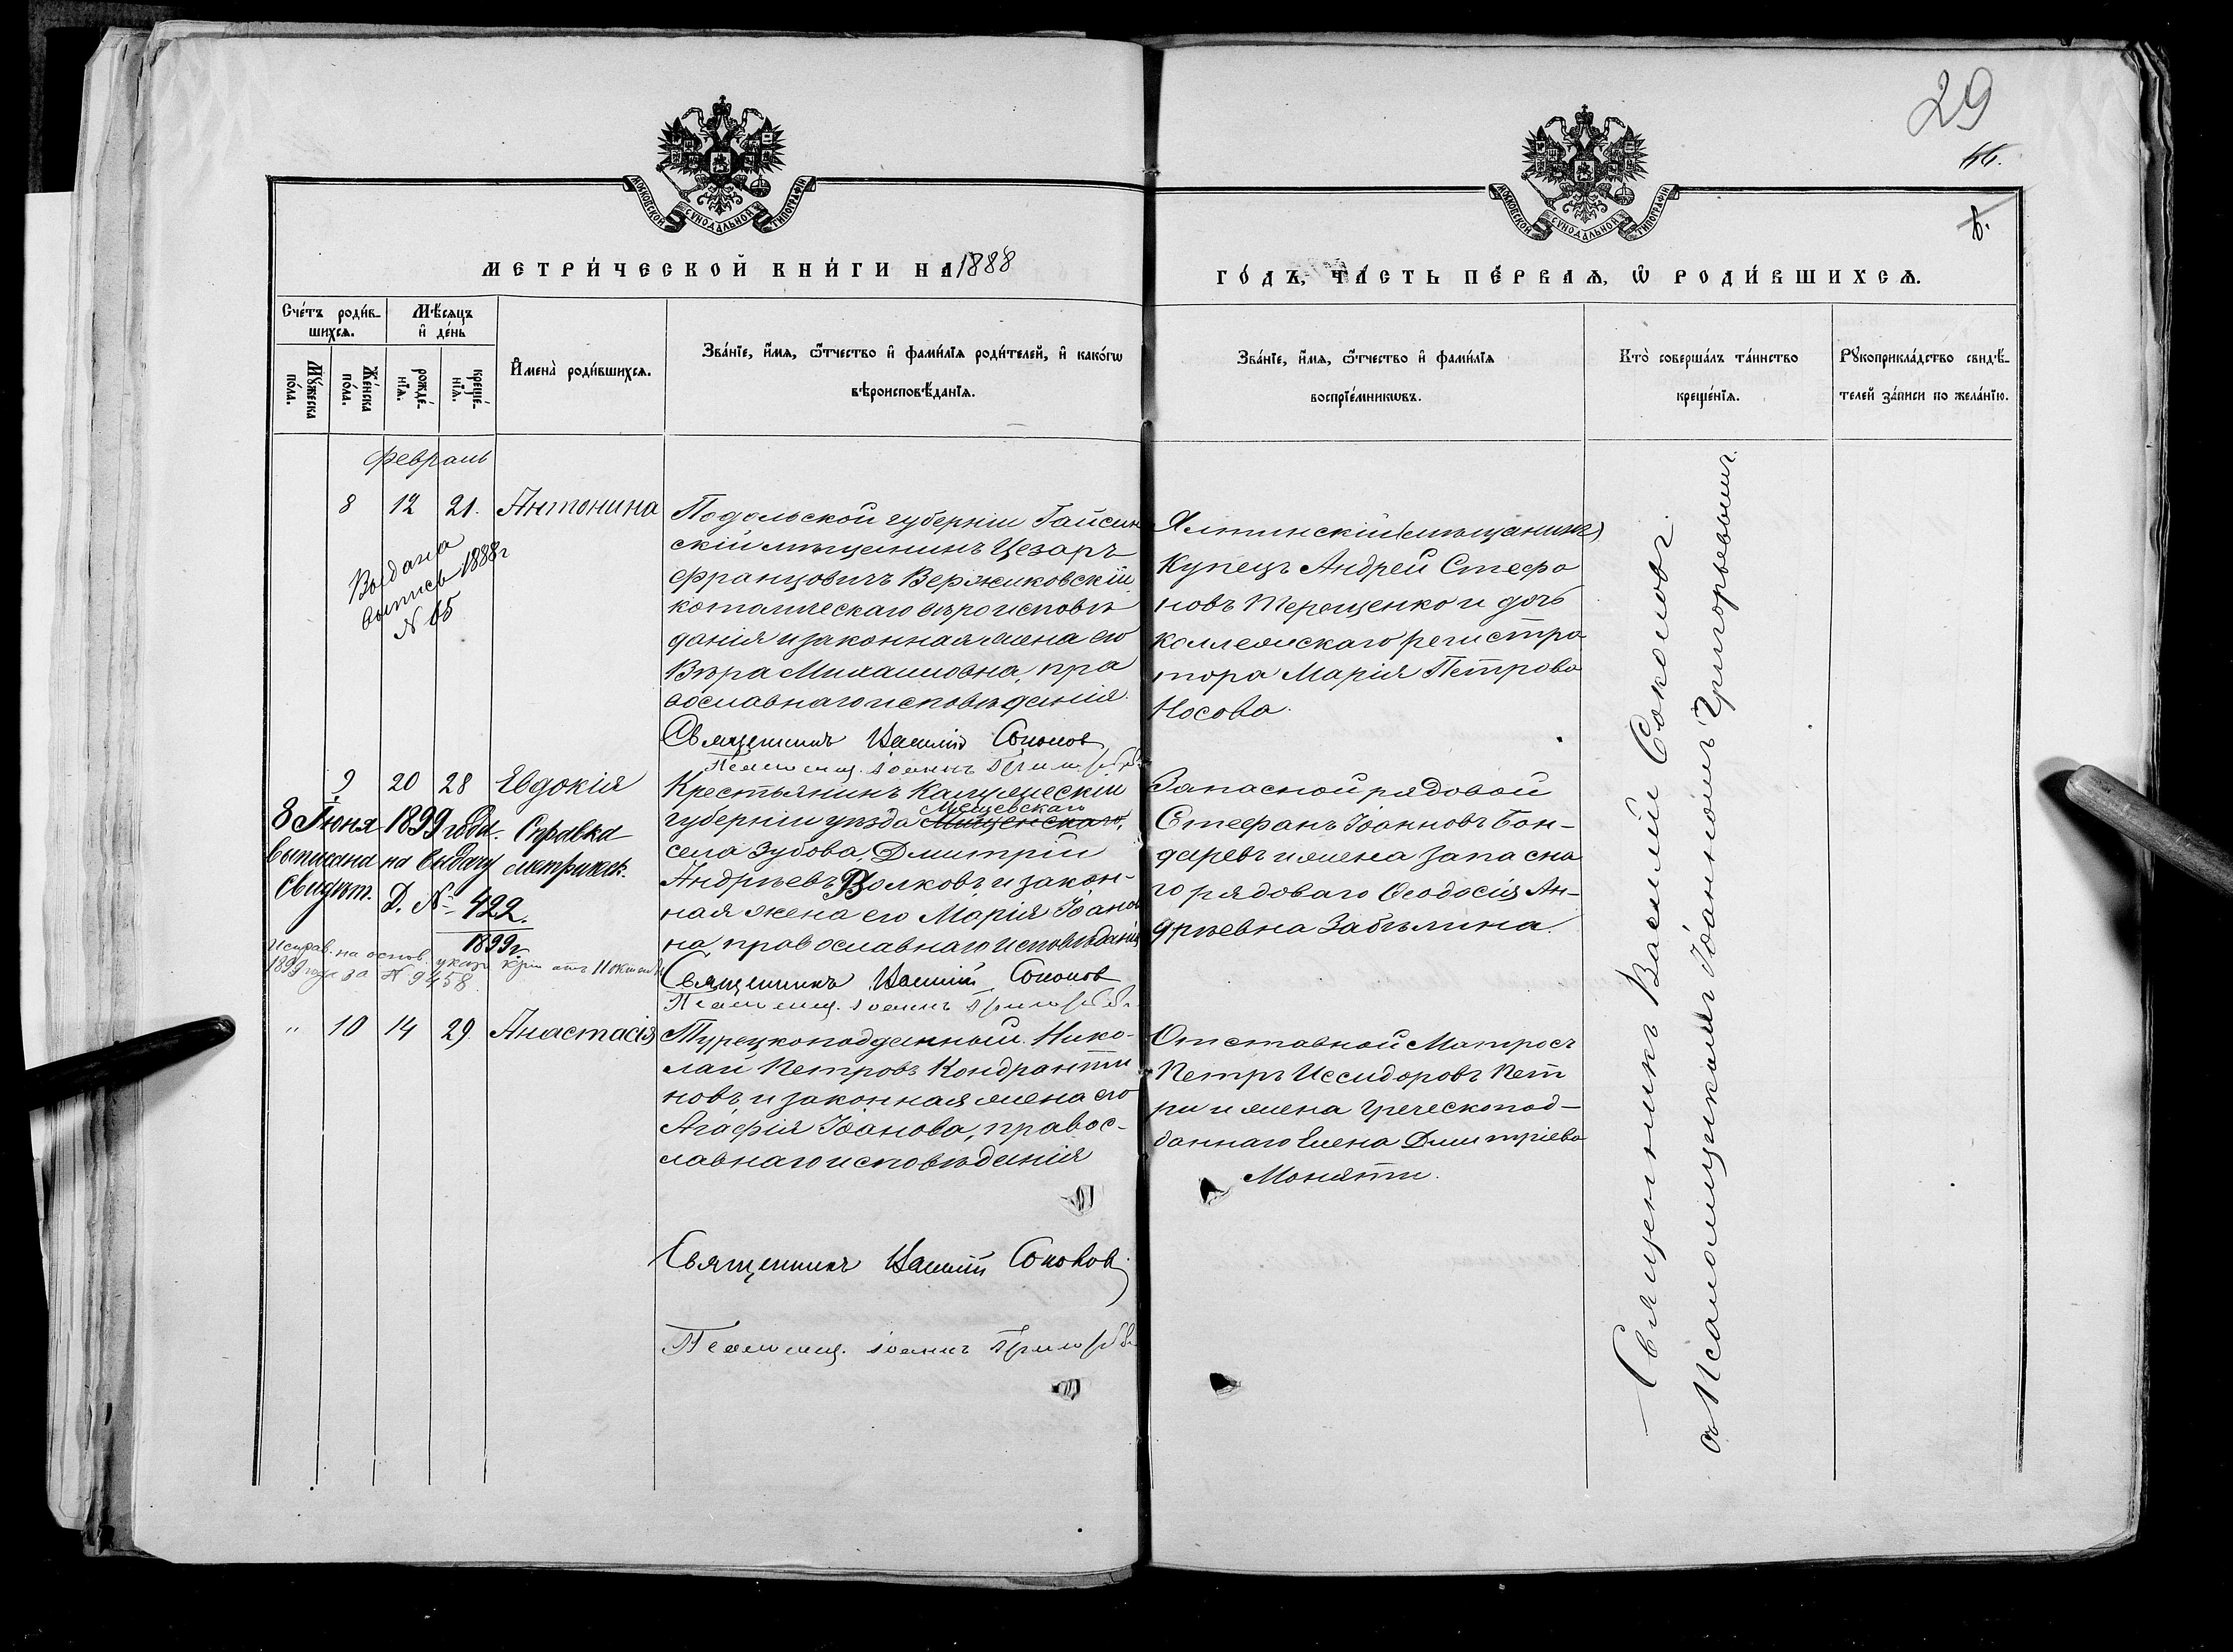 29
МОСКОВСКОЙ СУНОДАЛЬНОЙ ТИПОГРАФІИ
МОСКОВСКОЙ СУНОДАЛЬНОЙ ТИПОГРАФІИ
МЕТРИ́ЧЕСКОЙ КНИ́ГИ НА 1888
ГО́ДЪ, ЧА́СТЬ ПЕ́РВАѦ, Ѡ҆ РОДИ́ВШИХСѦ.
Сче́тъ роди́в-
шихсѧ.
Мꙋ́жеска
по́ла.
Же́нска
по́ла.
Мѣ́сѧцъ
и҆ де́нь
рожде́-
нїѧ.
креще́-
нїѧ.
И҆мена̀ роди́вшихсѧ.
Зва́нїе, и҆́мѧ, ѻ҆́тчество и҆ фами́лїѧ роди́телей, и҆ како́гѡ
вѣроисповѣ́данїѧ.
Зва́нїе, и҆́мѧ, ѻ҆́тчество и҆ фами́лїѧ
воспрїе́мникѡвъ.
Кто̀ соверша́лъ та́инство
креще́нїѧ.
Рꙋкоприкла́дство свидѣ́-
телей за́писи по жела́нїю.
Февраль
8 12 21. Антонина
Выдана
выпись 1888г
N 65
Подольской губерніи Гайсин
скій мѣщанинъ Цезарь
Францовичъ Вержиковскій
католическаго вѣроисповѣ
данія и законная жена его
Вѣра Михаиловна, пра
вославнаго исповѣданія.
Священникъ Василій Соколов
Псаломщ. Іоаннъ Григорович
Ялтинскій (мѣщанинъ)
Купецъ Андрей Стефа
новъ Терещенко и дочь
коллежскаго регистра
тора Марія Петрова
Носова.
9 20 28 Евдокія
8 Іюня 1899 года. Справка
выписана на выдачу метрическ.
свидѣт. Д. № 422.
1899 г.
Исправ. на основ. указа Крін отъ 11 октяб
1899 года за № 9458.
Крестьянинъ Калужескій
губерніи уѣзда Мещевскаго Мищенскаго,
села Зубова, Дмитрій
Андрѣевъ Волковъ и закон-
ная жена его Марія Іоанов
на православнаго исповѣданія
Священникъ Василій Соколов
Псаломщ. Іоаннъ Григорович
Запасной рядовой
Стефанъ Іоанновъ Бон-
даревъ и жена запасна
го рядоваго Ѳеодосія Ан-
дрѣевна Забѣлина.
" 10 14 29. Анастасія
Турецкоподданный Нико-
лай Петровъ Кондрантти
новъ и законная жена его
Агафія Іоанова, правос-
лавнаго исповѣданія
Священникъ Василій Соколов
Псаломщ. Іоаннъ Григорович
Отставной Матросъ
Петръ Иссидоровъ Пет
ри и жена греческопод-
даннаго Елена Дмитріева
Монятти.
Священникъ Василій Соколовъ.
съ Псаломщикомъ Іоанномъ Григоровымъ.